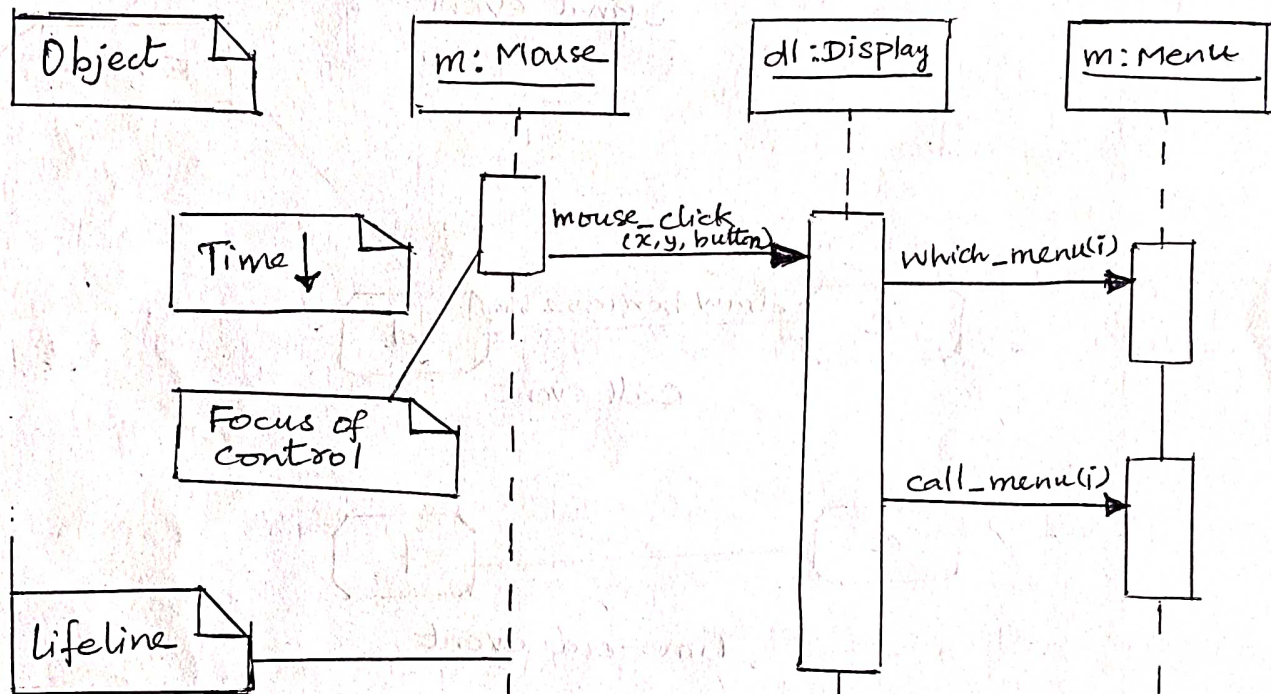 Object
m: Mouse
d1:Display
m: Menu
Time ↓
mouse_click
(x, y, button)
which_menu(i)
Focus of
control
call_menu(i)
Lifeline